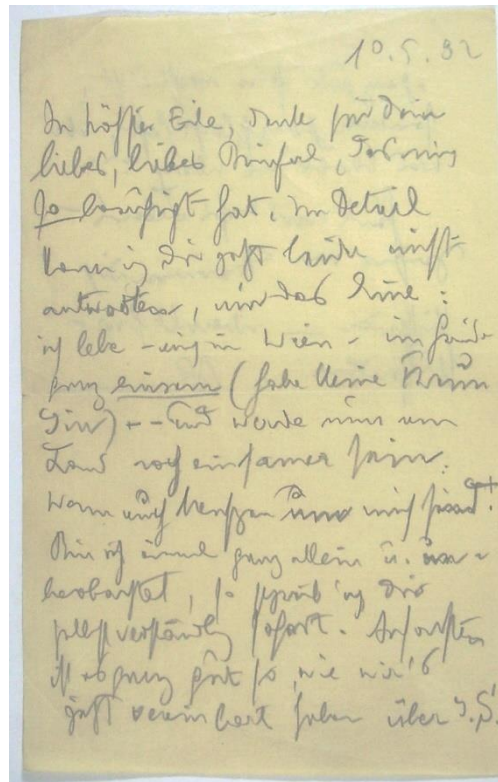 10.5.32
In höchster Eile, danke für dein
liebes, liebes Brieferl, das mich
so beruhigt hat. Im Detail
kann ich dir jetzt leider nicht
antworten, nur das Eine:
ich lebe - auch in Wien - im
ganz einsam (habe keine Freun
din) -- und werde nun am
Land noch einsamer sein.
Wenn auch Menschen um mich sind.
Bin ich einmal ganz allein u. un-
beobachtet, so schreib' ich dir
selbstverständlich sofort. Ansonsten
ist es ganz gut so, wie wir's
jetzt vereinbart haben über J.S.